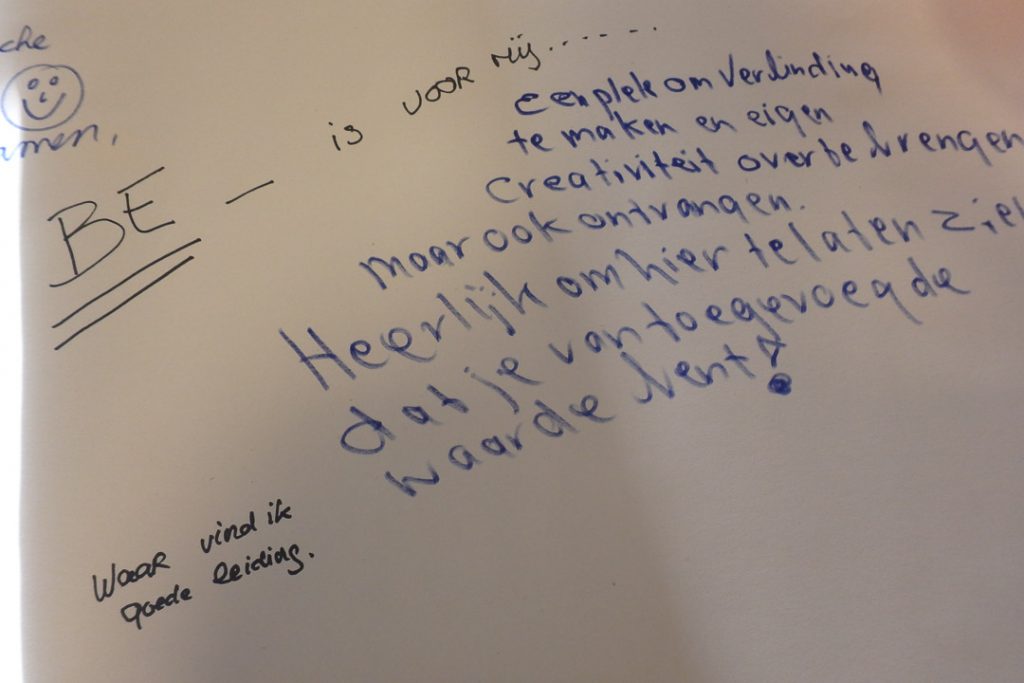 che
men,
BE - is voor mij.......
een plek om verbinding
te maken en eigen
creativiteit over te brengen
maar ook ontvangen.
Heerlijk om hier te laten zie
dat je van toegevoegde
waarde bent!
Waar vind ik
goede leiding.